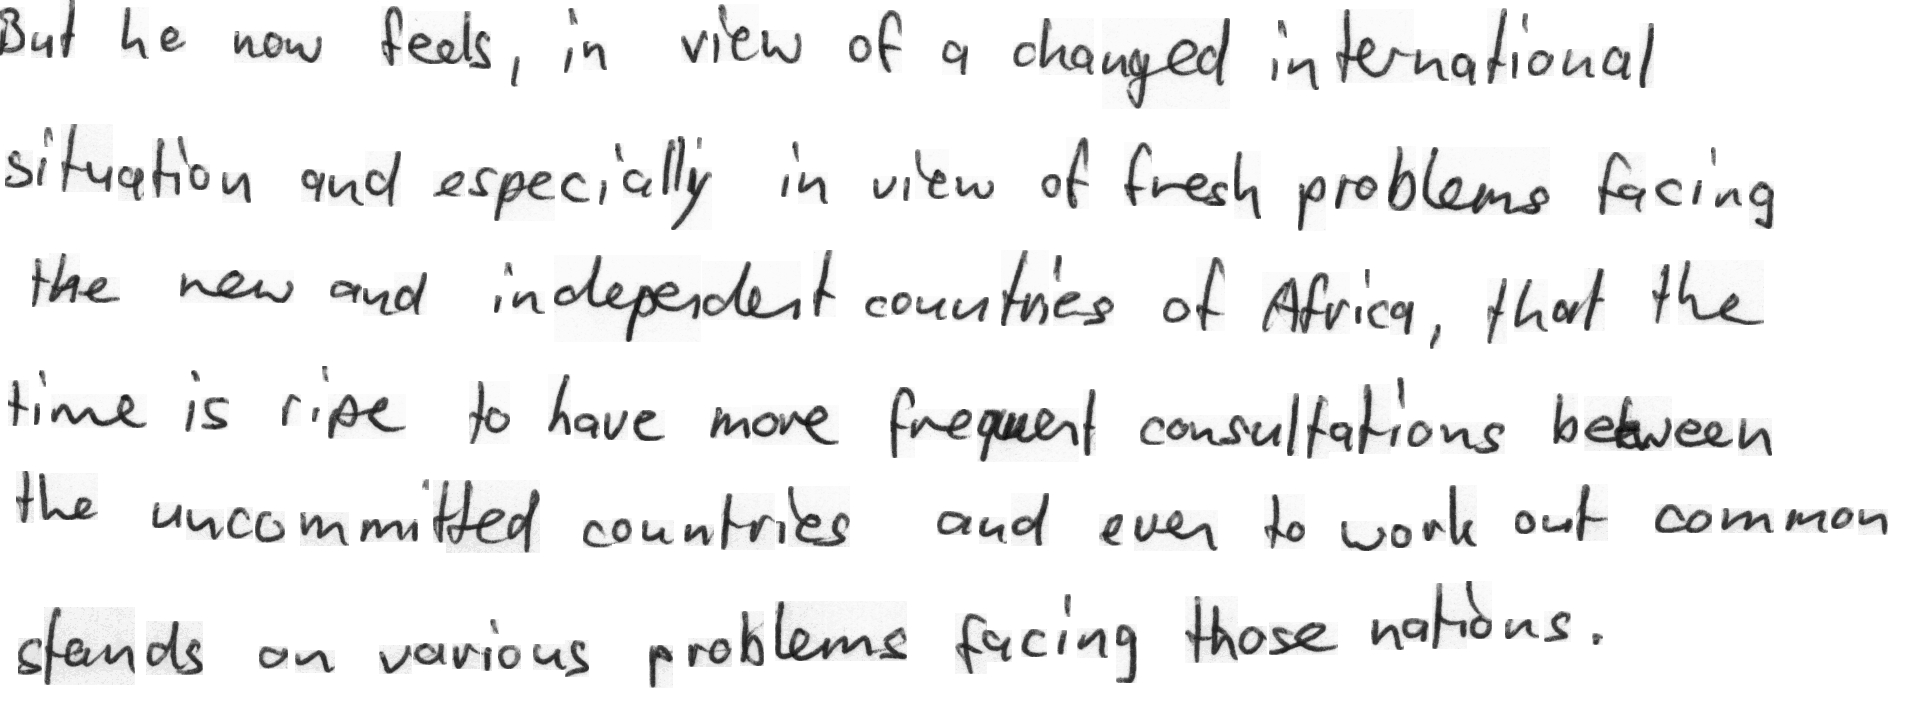 But he now feels, in view of a changed international
situation and especially in view of fresh problems facing
the new and independent countries of Africa, that the
time is ripe to have more frequent consultations between
the uncommitted countries and even to work out common
stands on various problems facing those nations.